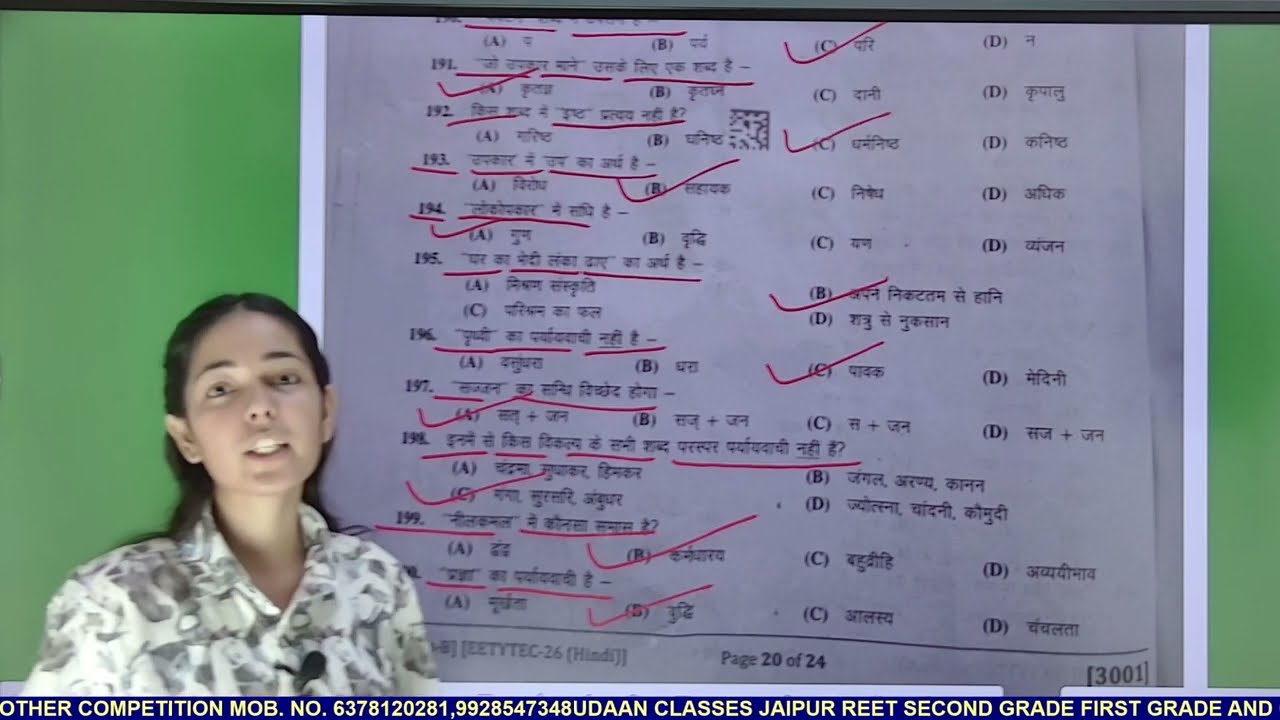 (A) प (B) पर्य (C) परि (D) न
191. "जो उपकार माने" उसके लिए एक शब्द है –
(A) कृतज्ञ (B) कृतघ्न (C) दानी (D) कृपालु
192. किस शब्द में "इष्ठ" प्रत्यय नहीं है?
(A) गरिष्ठ (B) घनिष्ठ (C) धर्मनिष्ठ (D) कनिष्ठ
193. "उपकार" में "उप" का अर्थ है –
(A) विरोध (B) सहायक (C) निषेध (D) अधिक
194. "लोकोपकार" में संधि है –
(A) गुण (B) वृद्धि (C) यण (D) व्यंजन
195. "घर का भेदी लंका ढाए" का अर्थ है –
(A) मिश्रण संस्कृति (B) अपने निकटतम से हानि
(C) परिश्रम का फल (D) शत्रु से नुकसान
196. "पृथ्वी" का पर्यायवाची नहीं है –
(A) वसुंधरा (B) धरा (C) पावक (D) मेदिनी
197. "सज्जन" का सन्धि विच्छेद होगा –
(A) सत् + जन (B) सज् + जन (C) स + जन (D) सज + जन
198. इनमें से किस विकल्प के सभी शब्द परस्पर पर्यायवाची नहीं हैं?
(A) चंद्रमा, सुधाकर, हिमकर (B) जंगल, अरण्य, कानन
(C) गंगा, सुरसरि, अंबुधर (D) ज्योत्स्ना, चांदनी, कौमुदी
199. "नीलकमल" में कौनसा समास है?
(A) द्वंद्व (B) कर्मधारय (C) बहुव्रीहि (D) अव्ययीभाव
"प्रज्ञा" का पर्यायवाची है –
(A) मूर्खता (B) बुद्धि (C) आलस्य (D) चंचलता
[EETYTEC-26 (Hindi)] Page 20 of 24 [3001]
OTHER COMPETITION MOB. NO. 6378120281,9928547348UDAAN CLASSES JAIPUR REET SECOND GRADE FIRST GRADE AND